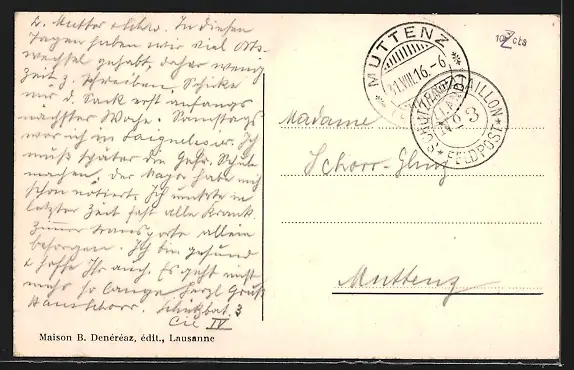 L. Mutter & Schw. In diesen
Tagen haben wir viel Orts-
wechsel gehabt, daher wenig
Zeit z. schreiben. Schicke
nur d. Sack erst anfangs
nächster Woche. Sonntags
war ich in Ich
muß später die Gefr. Schule
machen, der Major habe mich
schon notiert. Ich mußte in
letzter Zeit fast alle Krank.
Zimmer transporte allein
besorgen. Ich bin gesund
& hoffe Ihr auch. Es geht nicht
mehr so lange herzl. Gruß
Hans Schorr. Schützbat. 3
Cie IV
Maison B. Denéréaz, édit., Lausanne
MUTTENZ
31.VIII.16.-6
BATAILLON
No 3
* FELDPOST *
10 cts
Madame
Schorr-
Muttenz